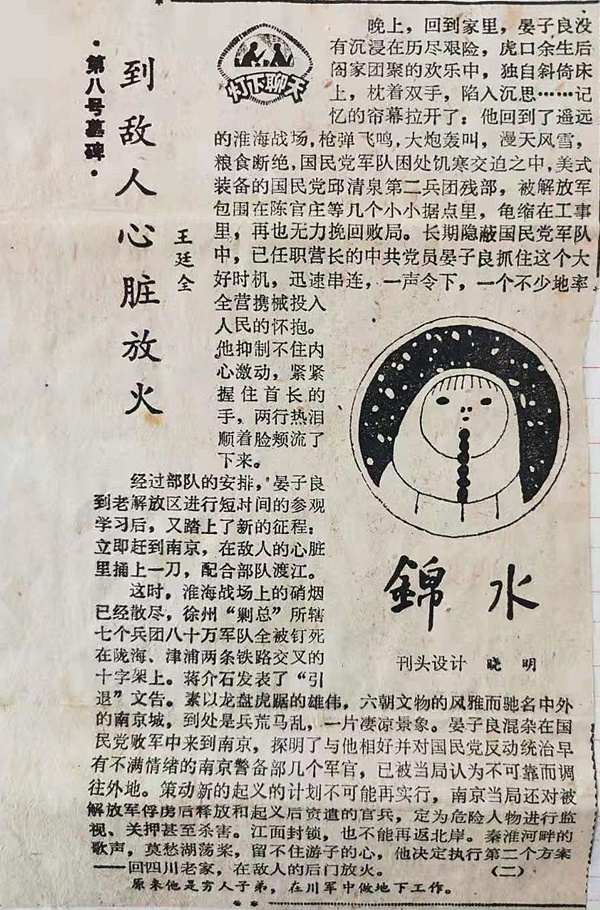 ·第八号墓碑·
到敌人心脏放火
王廷全
灯下聊天
晚上，回到家里，晏子良没
有沉浸在历尽艰险，虎口余生后
阁家团聚的欢乐中，独自斜倚床
上，枕着双手，陷入沉思……记
忆的帘幕拉开了：他回到了遥远
的淮海战场，枪弹飞鸣，大炮轰叫，漫天风雪，
粮食断绝，国民党军队困处饥寒交迫之中，美式
装备的国民党邱清泉第二兵团残部，被解放军
包围在陈官庄等几个小小据点里，龟缩在工事
里，再也无力挽回败局。长期隐蔽国民党军队
中，已任职营长的中共党员晏子良抓住这个大
好时机，迅速串连，一声令下，一个不少地率
全营携械投入
人民的怀抱。
他抑制不住内
心激动，紧紧
握住首长的
手，两行热泪
顺着脸颊流了
下来。
经过部队的安排，晏子良
到老解放区进行短时间的参观
学习后，又踏上了新的征程：
立即赶到南京，在敌人的心脏
里捅上一刀，配合部队渡江。
这时，淮海战场上的硝烟
已经散尽，徐州“剿总”所辖
七个兵团八十万军队全被钉死
在陇海、津浦两条铁路交叉的
十字架上。蒋介石发表了“引
退”文告。素以龙盘虎踞的雄伟，六朝文物的风雅而驰名中外
的南京城，到处是兵荒马乱，一片凄凉景象。晏子良混杂在国
民党败军中来到南京，探明了与他相好并对国民党反动统治早
有不满情绪的南京警备部几个军官，已被当局认为不可靠而调
往外地。策动新的起义的计划不可能再实行，南京当局还对被
解放军俘虏后释放和起义后资遣的官兵，定为危险人物进行监
视、关押甚至杀害。江面封锁，也不能再返北岸。秦淮河畔的
歌声，莫愁湖荡桨，留不住游子的心，他决定执行第二个方案
——回四川老家，在敌人的后门放火。
（二）
原来他是穷人子弟，在川军中做地下工作。
錦水
刊头设计 晓明